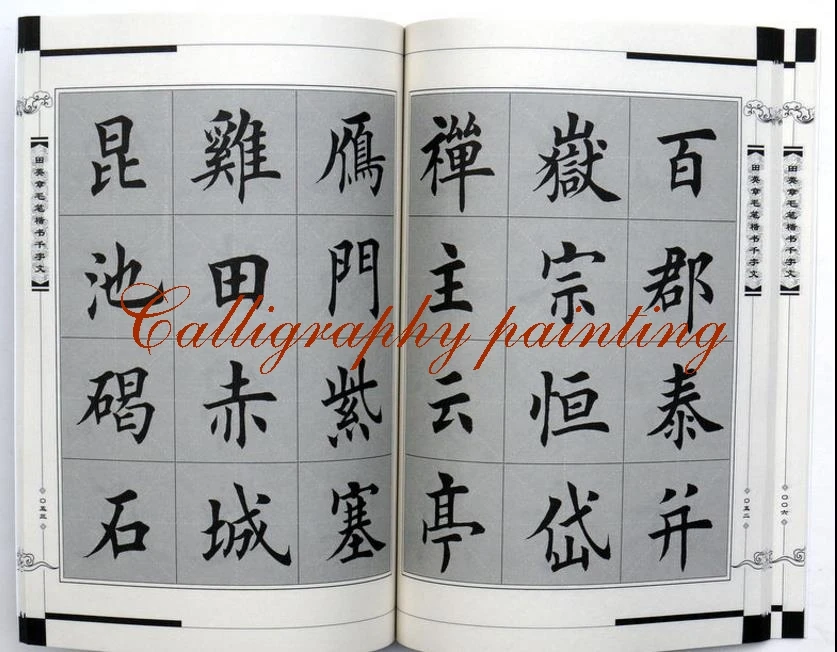 田英章毛笔楷书千字文
〇〇六
田英章毛笔楷书千字文
〇五二
百郡泰并
嶽宗恒岱
禪主云亭
鴈門紫塞
雞田赤城
昆池碣石
田英章毛笔楷书千字文
〇五三
Calligraphy painting